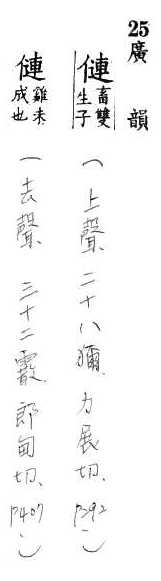 25
廣韻
僆畜雙生子
（上聲、二十八獮、力展切、P292）
僆雞未成也
（去聲、三十二霰、郎甸切、P407）